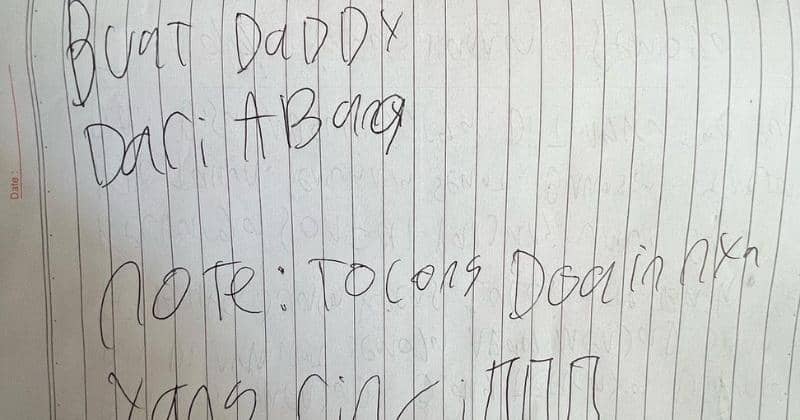 BUaT DaDDY
DaRi ABang
NOTE: TOLONG DOain nya
Date :